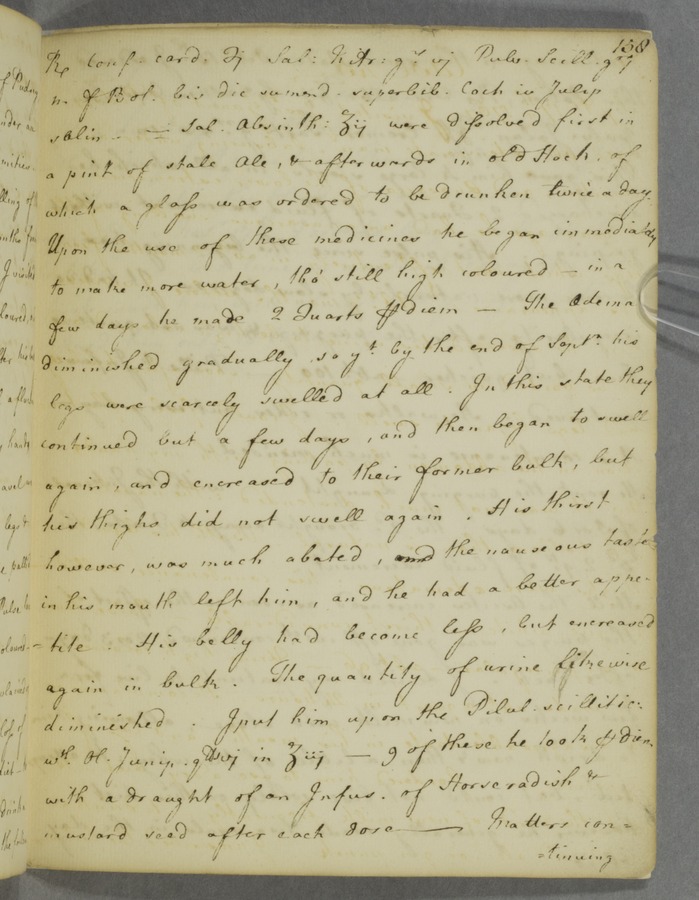 158
Rx Conf. card. ʒj Sal: Nitr: gr. vj Pulv. Scill. gr. j
m. f Bol. bis die sumend. superbib. Coch iv Julep
salin. — Sal. Absinth: ʒij were dissolved first in
a pint of stale Ale, & afterwards in old Hock, of
which a glass was ordered to be drunken twice a day.
Upon the use of these medicines he began immediately
to make more water, tho' still high coloured — in a
few days he made 2 Quarts ℔ diem — The Œdema
diminished gradually so yt. by the end of Septr. his
legs were scarcely swelled at all. In this state they
continued but a few days, and then began to swell
again, and encreased to their former bulk, but
his thighs did not swell again. His thirst
however, was much abated, and the nauseous taste
in his mouth left him, and he had a better appe-
-tite. His belly had become less, but encreased
again in bulk. The quantity of urine likewise
diminished. I put him upon the Pilul. scillitic:
wth. Ol. Junip. gtt vj in ʒiij — 9 of these he took ℔ diem
with a draught of an Infus. of Horseradish &
mustard seed after each dose — Matters con=
=tinuing